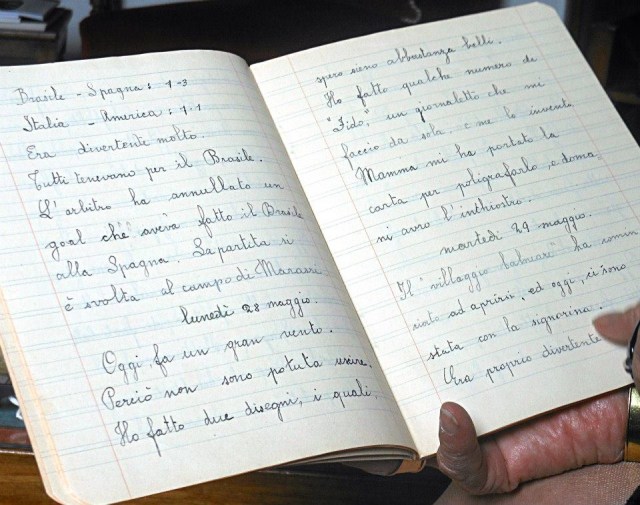 Brasile - Spagna: 1-3
Italia - America: 7.1
Era divertente molto.
Tutti tenevano per il Brasile.
L'arbitro ha annullato un
goal che aveva fatto il Brasile
alla Spagna. La partita si
è svolta al campo di Marassi.
lunedì 28 maggio.
Oggi fa un gran vento.
Perciò non sono potuta uscire.
Ho fatto due disegni, i quali,
spero sieno abbastanza belli.
Ho fatto qualche numero de
"Fido", un giornaletto che mi
faccio da sola, e me lo invento.
Mamma mi ha portato la
carta per poligrafarlo, e doma
ni avrò l'inchiostro.
martedì 29 maggio.
Il "villaggio balneare" ha comin
ciato ad aprirsi, ed oggi, ci sono
stata con la signorina.
Era proprio divertente